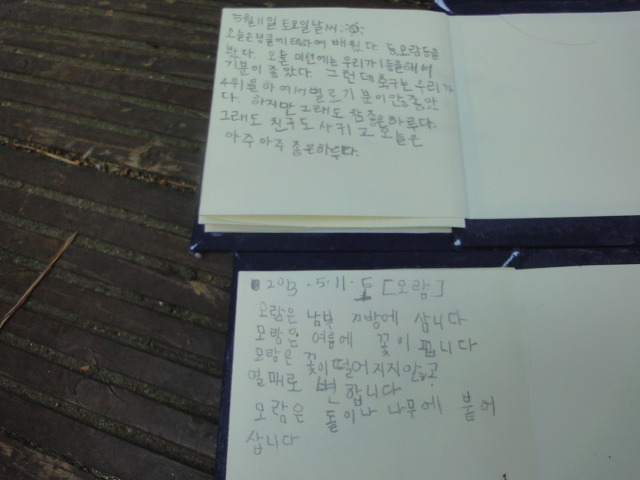 5월 11일 토요일 날씨:
오늘은 덩쿨에 대하여 배웠다. 등, 모람 등을
봤다. 오늘 미션에는 우리가 1등을 해서
기분이 좋았다. 그런데 축구는 우리가
4위를 하여서 별로 기분이 안 좋았
다. 하지만 그래도 참 좋은 하루다.
그래도 친구도 사귀고 오늘은
아주 아주 좋은 하루다.
2013.5.11.토 [모람]
모람은 남부 지방에 삽니다
모람은 여름에 꽃이 핍니다
모람은 꽃이 떨어지지 안고
열매로 변합니다
모람은 돌이나 나무에 붙어
삽니다